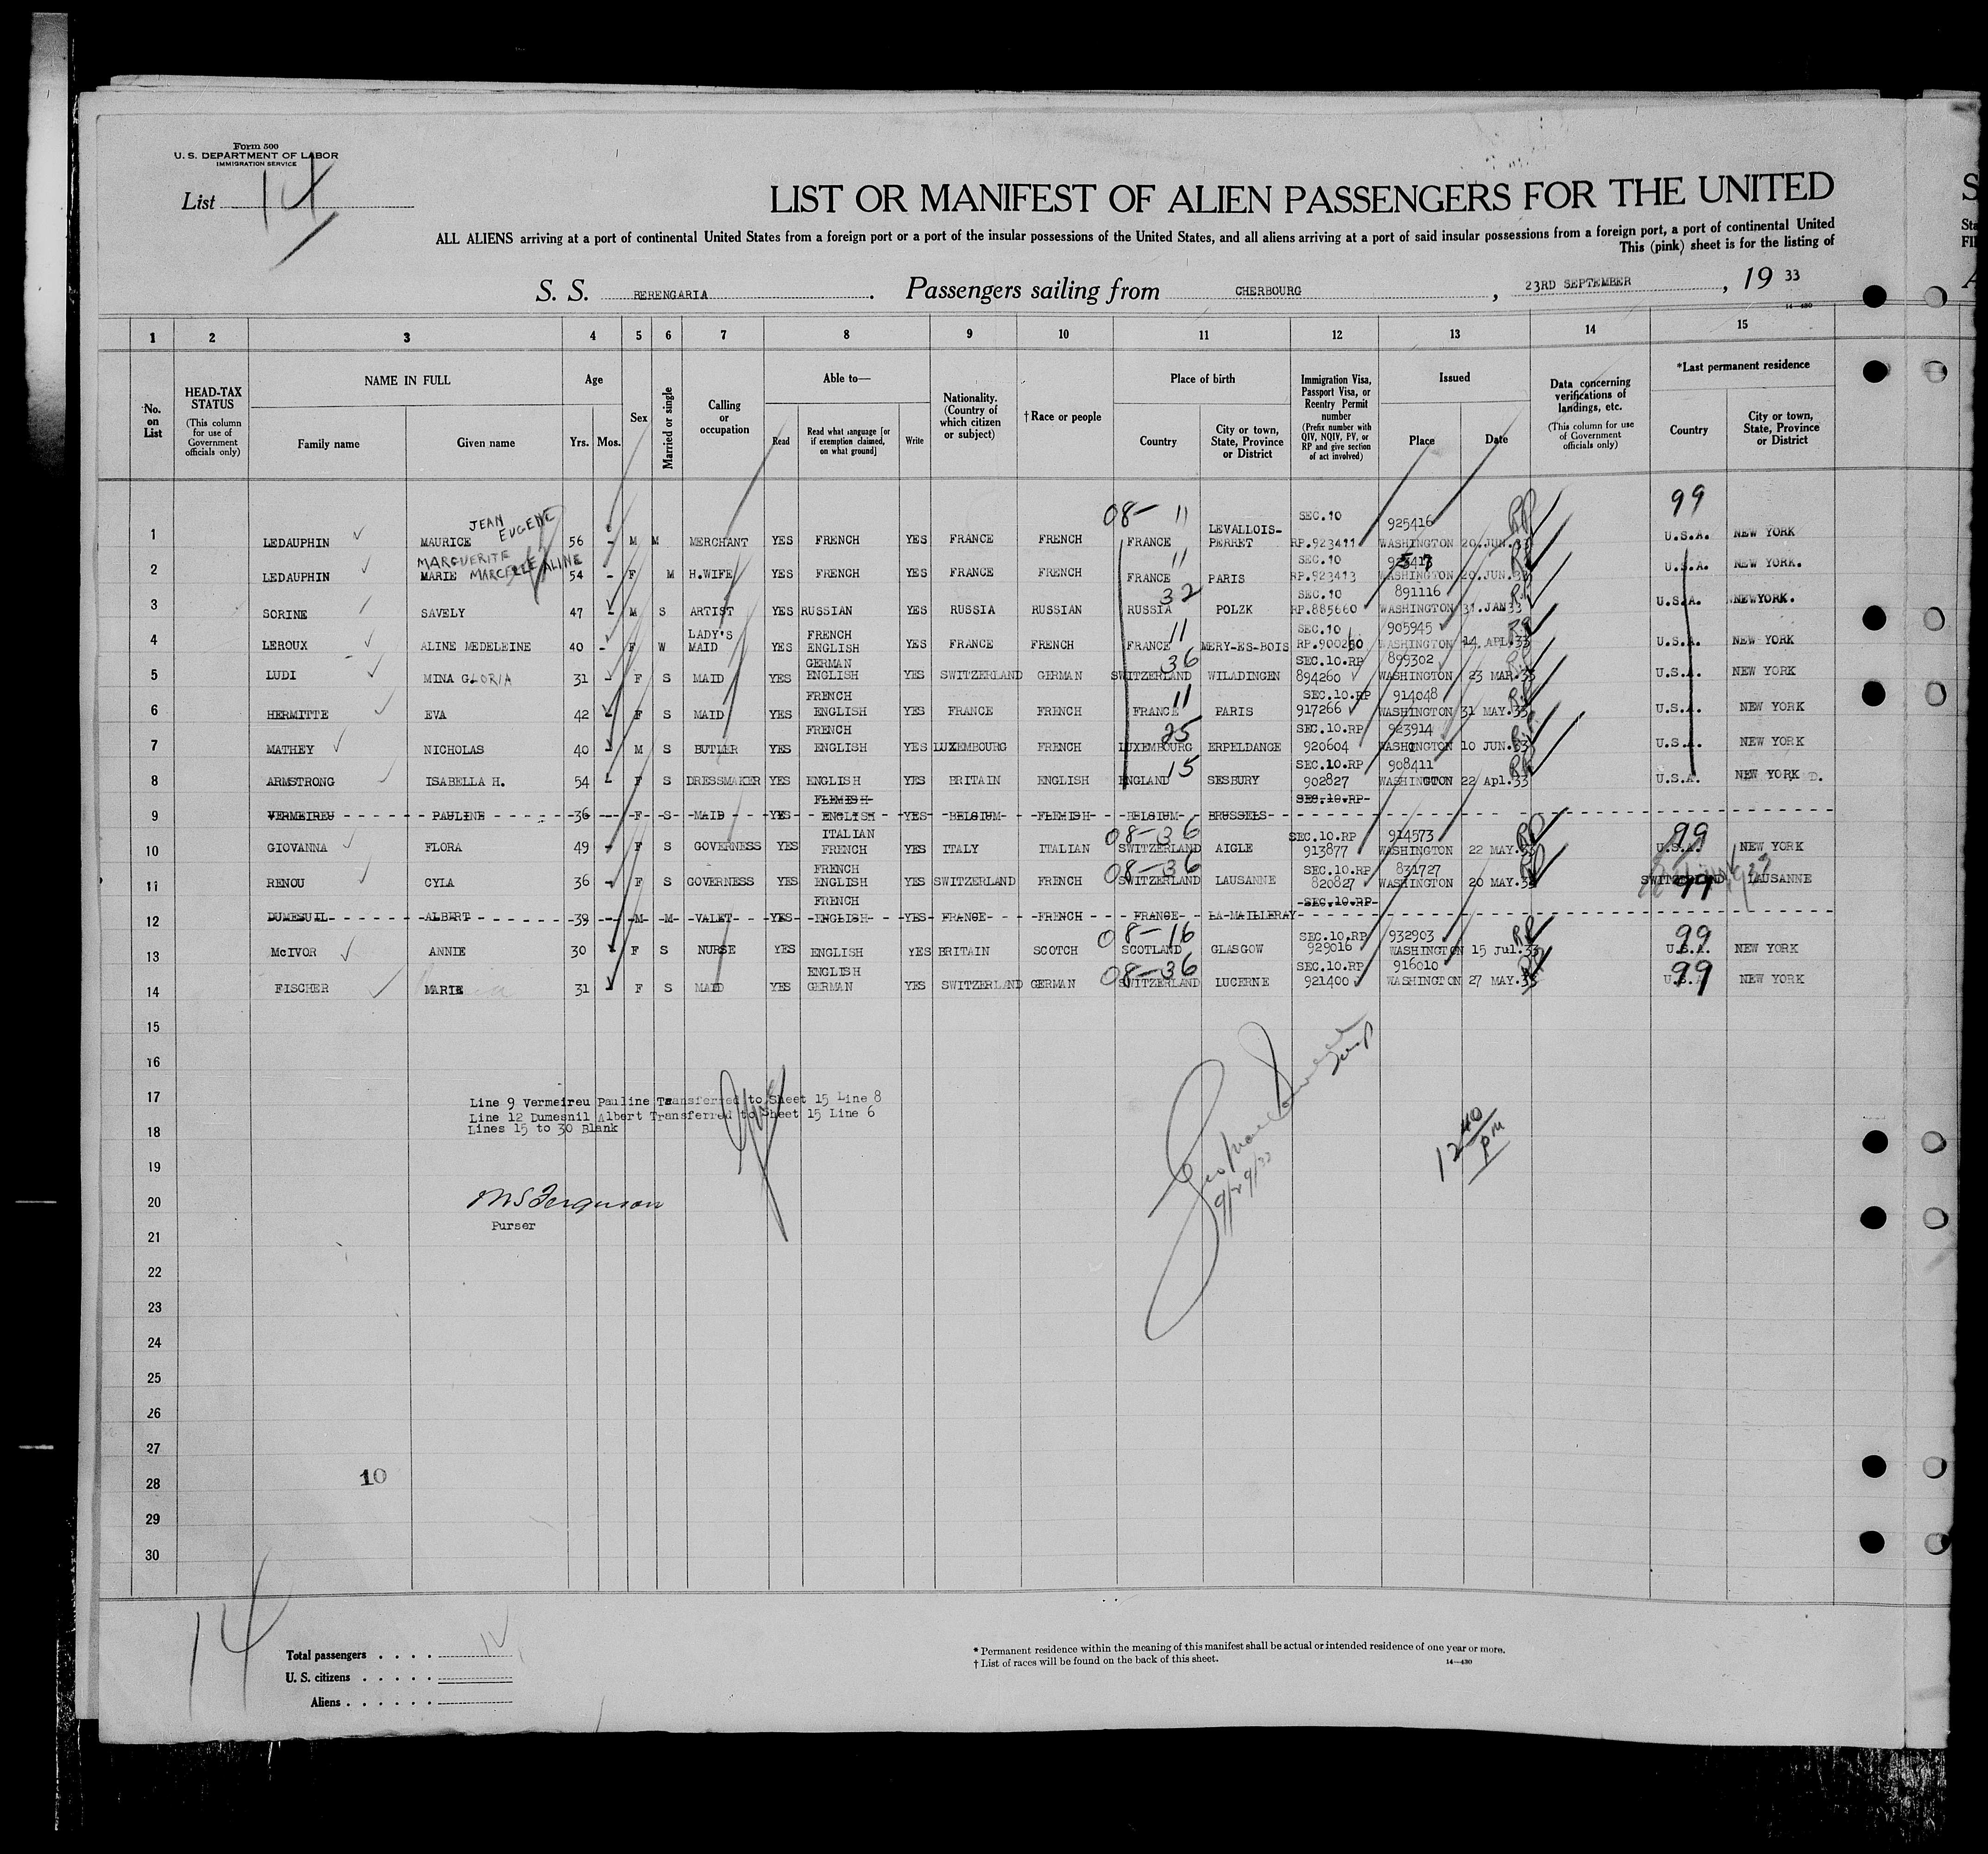 Form 500
U. S. DEPARTMENT OF LABOR
IMMIGRATION SERVICE
List 14
LIST OR MANIFEST OF ALIEN PASSENGERS FOR THE UNITED
ALL ALIENS arriving at a port of continental United States from a foreign port or a port of the insular possessions of the United States, and all aliens arriving at a port of said insular possessions from a foreign port, a port of continental United
This (pink) sheet is for the listing of
S. S. BERENGARIA. Passengers sailing from CHERBOURG, 23RD SEPTEMBER, 19 33
14-430
1 2 3 4 5 6 7 8 9 10 11 12 13 14 15
No. on List
HEAD-TAX STATUS (This column for use of Government officials only)
NAME IN FULL
Family name
Given name
Age
Yrs. Mos.
Sex
Married or single
Calling or occupation
Able to—
Read
Read what language [or if exemption claimed, on what ground]
Write
Nationality. (Country of which citizen or subject)
† Race or people
Place of birth
Country
City or town, State, Province or District
Immigration Visa, Passport Visa, or Reentry Permit number (Prefix number with QIV, NQIV, PV, or RP and give section of act involved)
Issued
Place
Date
Data concerning verifications of landings, etc. (This column for use of Government officials only)
*Last permanent residence
Country
City or town, State, Province or District
1 LEDAUPHIN MAURICE JEAN EUGENE 56 - M M MERCHANT YES FRENCH YES FRANCE FRENCH 08- 11 FRANCE LEVALLOIS-PERRET SEC.10 RP.923411 925416 WASHINGTON 20.JUN.33 RP 99 U.S.A. NEW YORK
2 LEDAUPHIN MARGUERITE MARIE MARCELLE ALINE 54 - F M H.WIFE YES FRENCH YES FRANCE FRENCH 11 FRANCE PARIS SEC.10 RP.923413 WASHINGTON 20.JUN.33 RP U.S.A. NEW YORK.
3 SORINE SAVELY 47 - M S ARTIST YES RUSSIAN YES RUSSIA RUSSIAN 32 RUSSIA POLZK SEC.10 RP.885660 891116 WASHINGTON 31.JAN33 RP U.S.A. NEWYORK.
4 LEROUX ALINE MEDELEINE 40 - F W LADY'S MAID YES FRENCH ENGLISH YES FRANCE FRENCH 11 FRANCE MERY-ES-BOIS SEC.10 RP.900260 905945 WASHINGTON 14 APL.33 RP U.S.A. NEW YORK
5 LUDI MINA GLORIA 31 F S MAID YES GERMAN ENGLISH YES SWITZERLAND GERMAN 36 SWITZERLAND WILADINGEN SEC.10.RP 894260 899302 WASHINGTON 23 MAR.33 RP U.S.A. NEW YORK
6 HERMITTE EVA 42 - F S MAID YES FRENCH ENGLISH YES FRANCE FRENCH 11 FRANCE PARIS SEC.10.RP 917266 914048 WASHINGTON 31 MAY.33 RP U.S.A. NEW YORK
7 MATHEY NICHOLAS 40 - M S BUTLER YES FRENCH ENGLISH YES LUXEMBOURG FRENCH 25 LUXEMBOURG ERPELDANGE SEC.10.RP 920604 923914 WASHINGTON 10 JUN.33 RP U.S.A. NEW YORK
8 ARMSTRONG ISABELLA H. 54 - F S DRESSMAKER YES ENGLISH YES BRITAIN ENGLISH 15 ENGLAND SESBURY SEC.10.RP 902827 908411 WASHINGTON 22 Apl.33 RP U.S.A. NEW YORK
9 VERMEIREU PAULINE 36 - F S MAID YES FLEMISH ENGLISH YES BELGIUM FLEMISH BELGIUM BRUSSELS SEC.10.RP
10 GIOVANNA FLORA 49 - F S GOVERNESS YES ITALIAN FRENCH YES ITALY ITALIAN 08-36 SWITZERLAND AIGLE SEC.10.RP 913877 914573 WASHINGTON 22 MAY.33 RP 99 U.S.A. NEW YORK
11 RENOU CYLA 36 - F S GOVERNESS YES FRENCH ENGLISH YES SWITZERLAND FRENCH 08-36 SWITZERLAND LAUSANNE SEC.10.RP 820827 831727 WASHINGTON 20 MAY.33 RP SWITZERLAND 99 LAUSANNE
12 DUMESUIL ALBERT 39 - M M VALET YES FRENCH ENGLISH YES FRANCE FRENCH FRANCE LA-MAILLERAY SEC.10.RP
13 McIVOR ANNIE 30 F S NURSE YES ENGLISH YES BRITAIN SCOTCH 08-16 SCOTLAND GLASGOW SEC.10.RP 929016 932903 WASHINGTON 15 Jul.33 RP 99 U.S.A. NEW YORK
14 FISCHER MARIE 31 F S MAID YES ENGLISH GERMAN YES SWITZERLAND GERMAN 08-36 SWITZERLAND LUCERNE SEC.10.RP 921400 916010 WASHINGTON 27 MAY.33 RP 99 U.S.A. NEW YORK
15
16
17
Line 9 Vermeireu Pauline Transferred to Sheet 15 Line 8
Line 12 Dumesnil Albert Transferred to Sheet 15 Line 6
Lines 15 to 30 Blank
18
12 40 pm
19
20
Ferguson
Purser
21
22
23
24
25
26
27
28
10
29
30
14
Total passengers
U. S. citizens
Aliens
* Permanent residence within the meaning of this manifest shall be actual or intended residence of one year or more.
† List of races will be found on the back of this sheet.
14—430